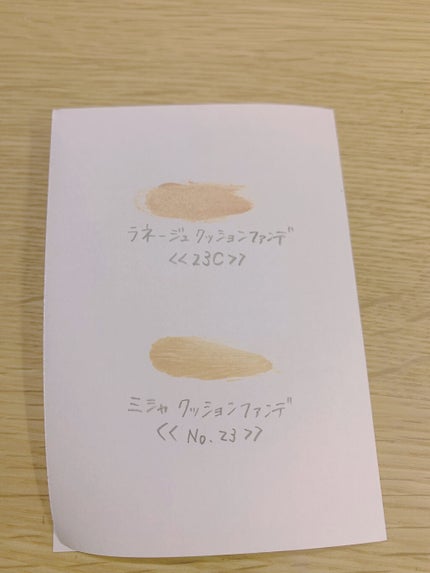 ラネージュ クッションファンデ
<<23C>>
ミシャ クッションファンデ
<< No.23 >>